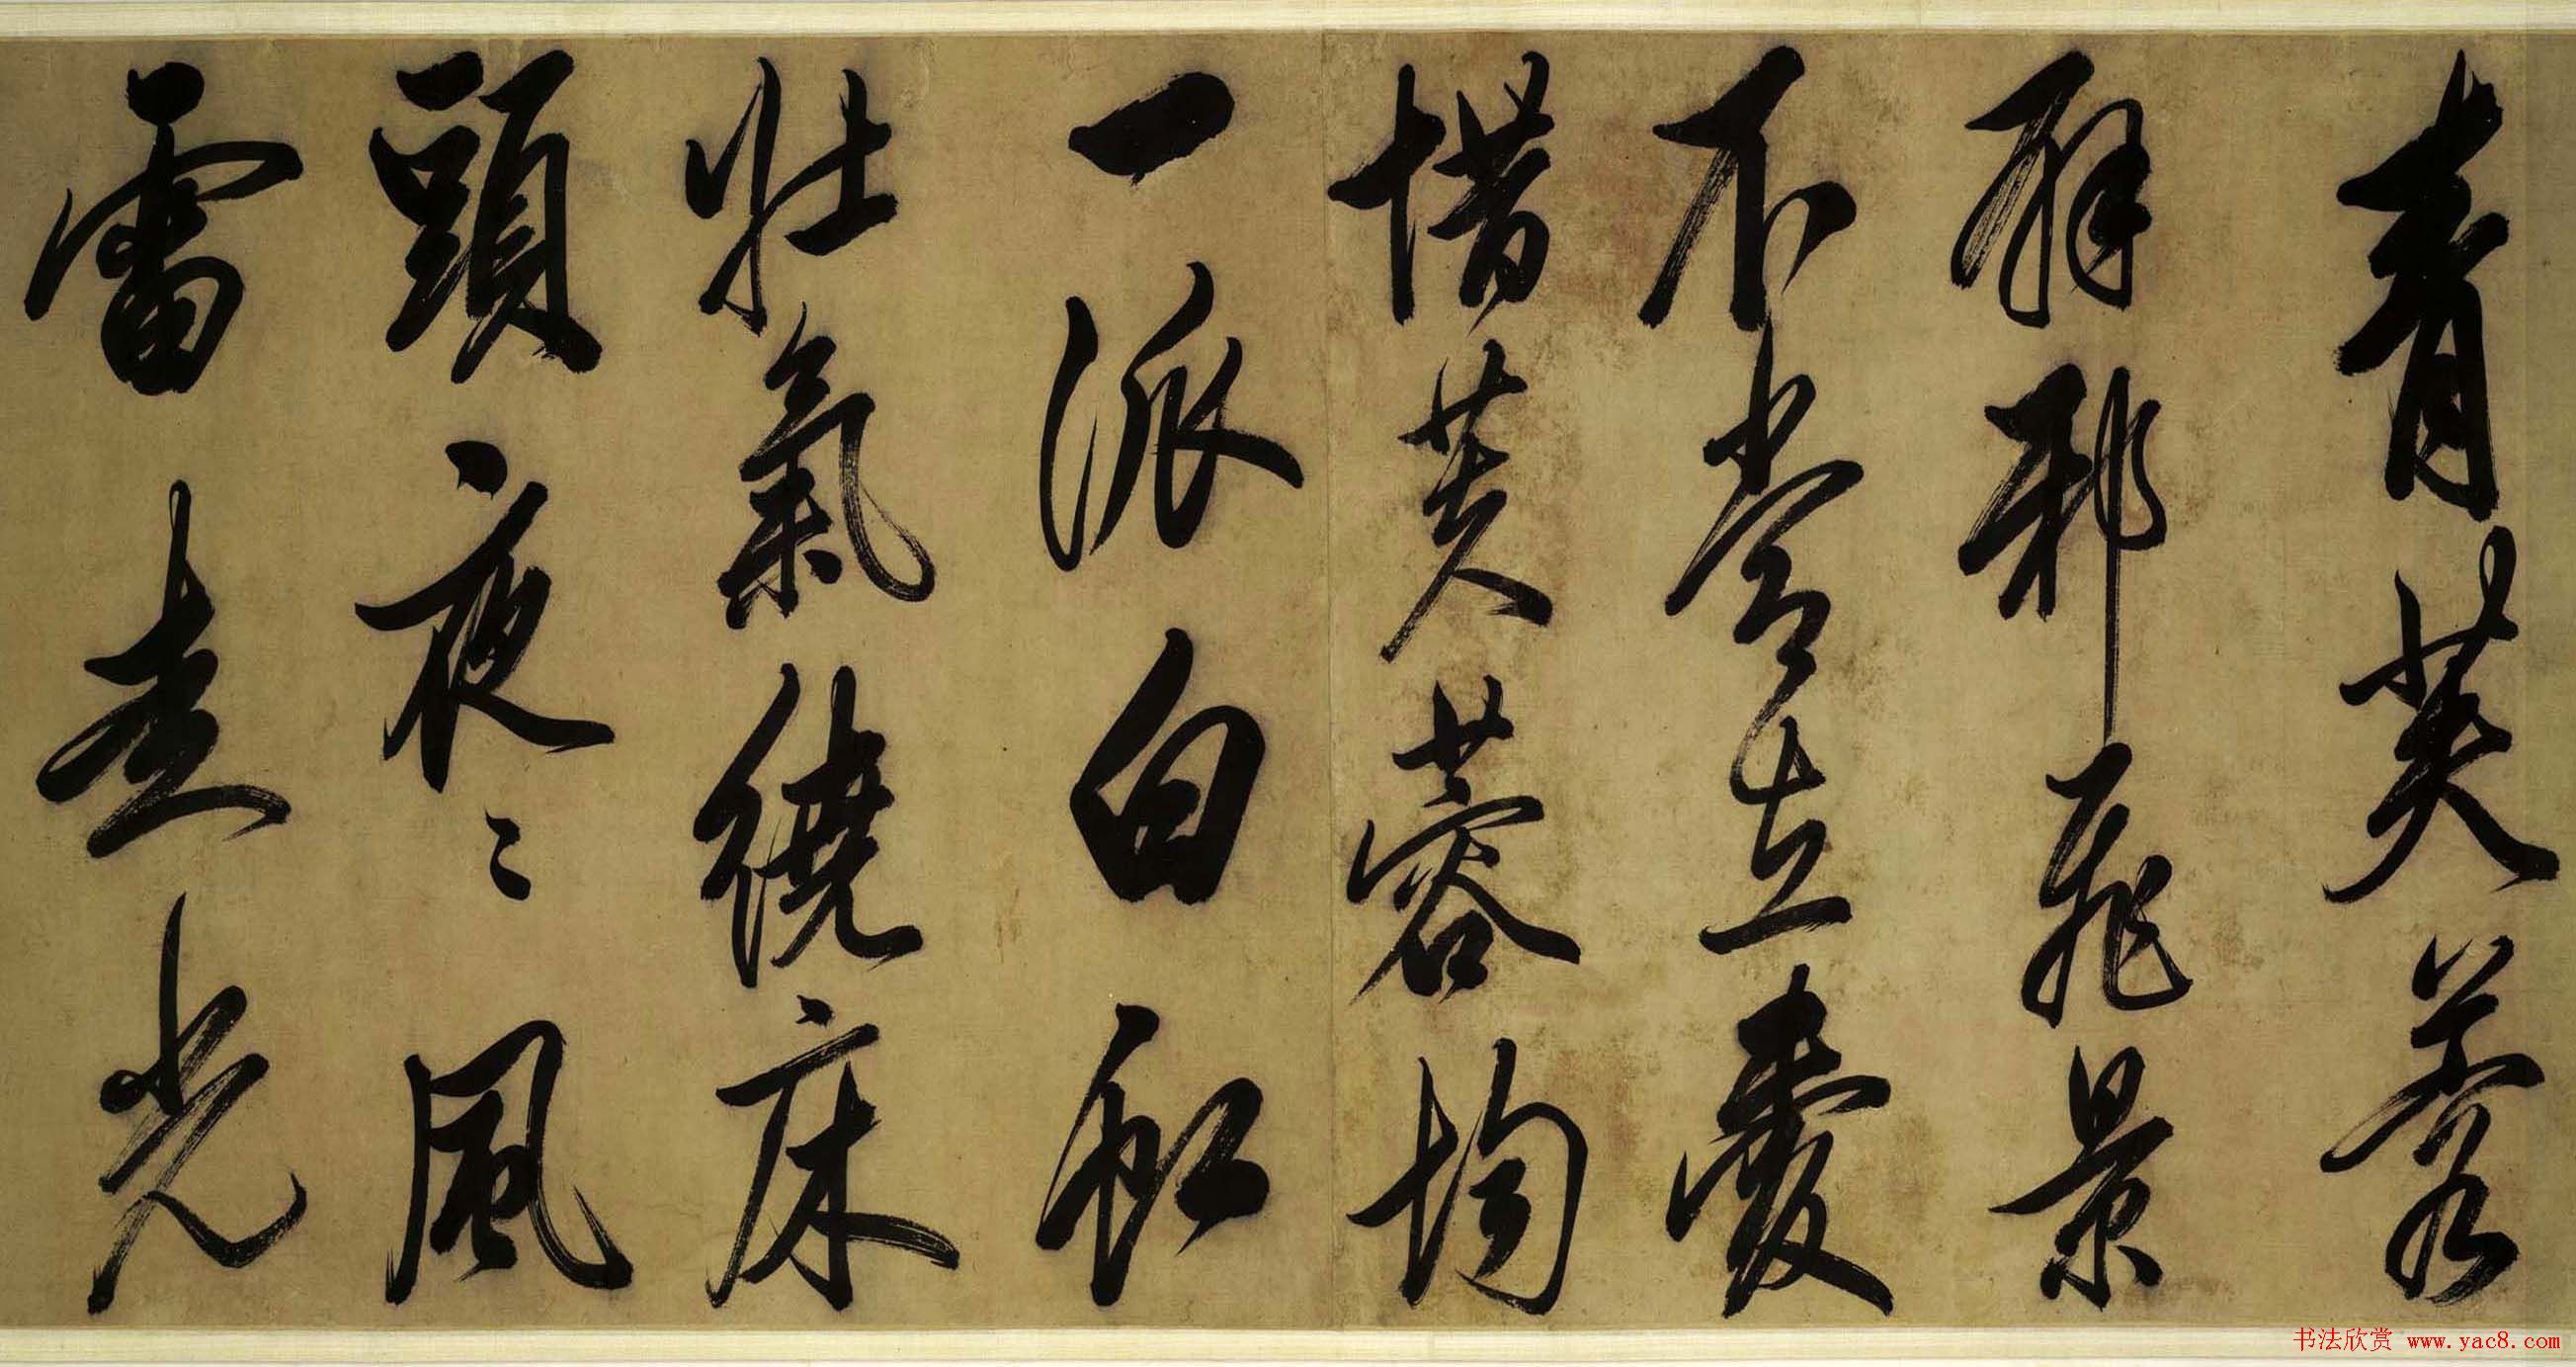 青芙蓉
辟邪飛景
不
惜芙蓉均
一派白虹
壯氣繞床
頭夜〻風
雷走光
书法欣赏 www.yac8.com